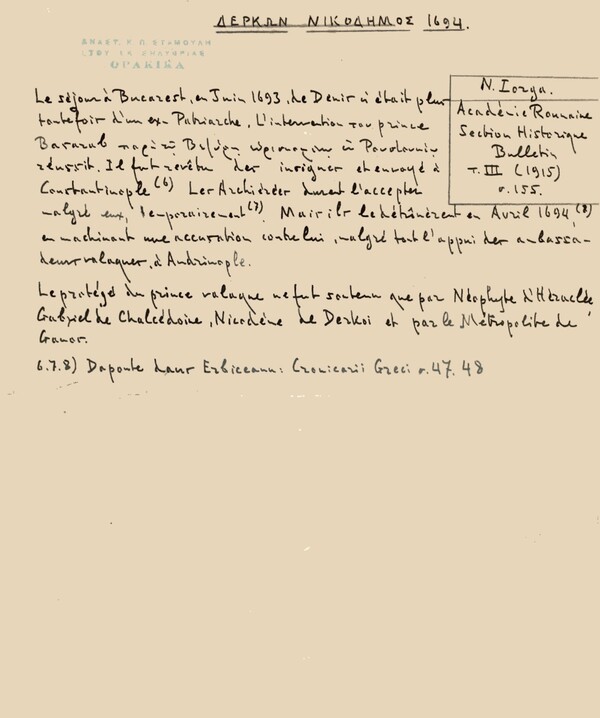 ΔΕΡΚΩΝ ΝΙΚΟΔΗΜΟΣ 1694.
ΑΝΑΣΤ. Κ. Π. ΣΤΑΜΟΥΛΗ
ΘΡΑΚΙΚΑ
N. Iorga.
Académie Roumaine
Section Historique
Bulletin
τ. III (1915)
σ. 155.
Le séjour à Bucarest, en Juin 1693, de Denis était plus
toutefois d'un ex-Patriarche. L'intervention του prince
Basarab
réussit. Il fut revêtu des insignes et envoyé à
Constantinople (6) Les Archiérées durent l'accepter
malgré eux, temporairement (7) Mais ils le détrônèrent en Avril 1694 (8)
en machinant une accusation contre lui, malgré tout l'appui des ambassa-
deurs valaques, à Andrinople.
Le protégé du prince valaque ne fut soutenu que par Néophyte d'Héraclée
Gabriel de Chalcédoine, Nicodène de Derkoi et par le Métropolite de
Ganos.
6.7.8) Daponte dans Erbiceanu: Cronicarii Greci σ. 47. 48